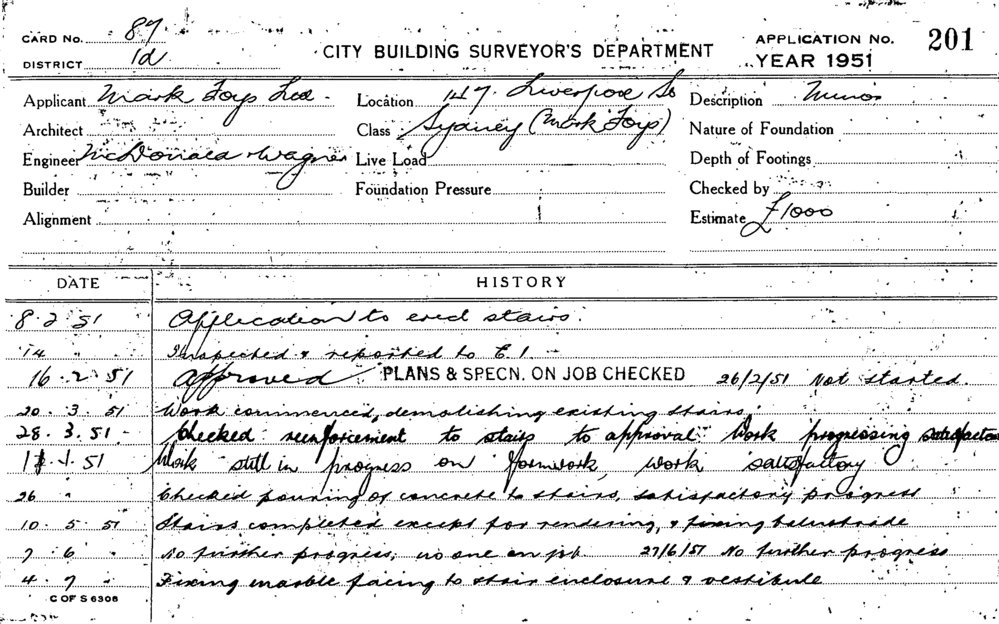 CARD No. 87
DISTRICT 1d
CITY BUILDING SURVEYOR'S DEPARTMENT
APPLICATION No. 201
YEAR 1951
Applicant Mark Foys Ltd.
Location 147. Liverpool St
Description Minor
Architect
Class Sydney (Mark Foys)
Nature of Foundation
Engineer McDonald & Wagner
Live Load
Depth of Footings
Builder
Foundation Pressure
Checked by
Alignment
Estimate £1000
DATE HISTORY
8 2 51 Application to erect stairs.
14 " Inspected & reported to E.1.
16 . 2 . 51 Approved PLANS & SPECN. ON JOB CHECKED 26/2/51 Not started.
20 . 3 . 51 Work commenced, demolishing existing stairs.
28 . 3 . 51 Checked reinforcement to stairs to approval Work progressing satisfactory
51 Work still in progress on formwork, work satisfactory
26 " Checked pouring of concrete to stairs, satisfactory progress
10 . 5 . 51 Stairs completed except for rendering, & fixing balustrade
7 . 6 " No further progress, no one on job 27/6/51 No further progress
4 . 7 " Fixing marble facing to stair enclosure & vestibule
C OF S 6306